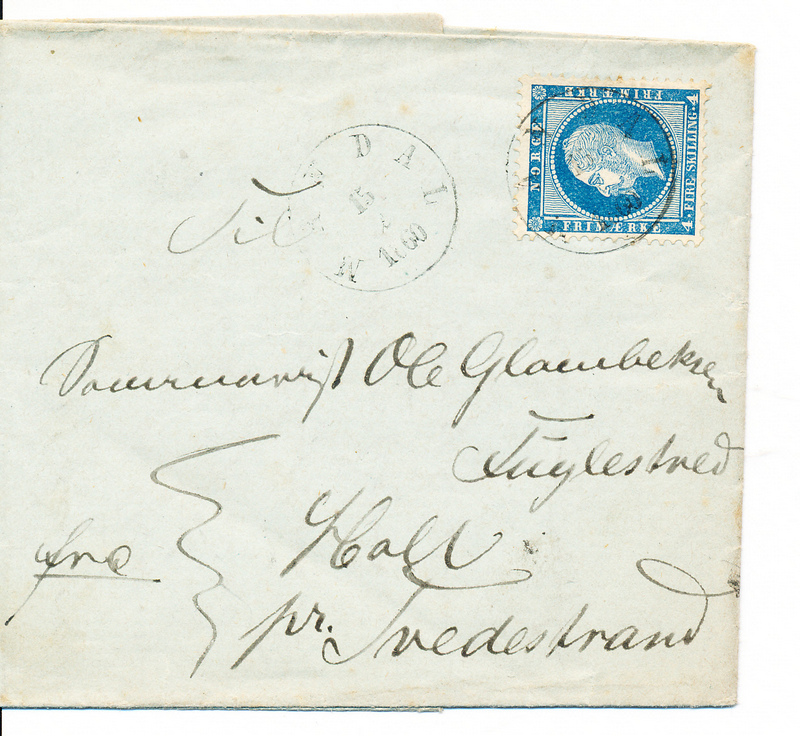 NORGE
FRIMÆRKE
FRIMÆRKE
4 FIRE SKILLING 4
DAL
15
1860
Til
Ole
Fuglestved
fra
Holt
pr. Tvedestrand